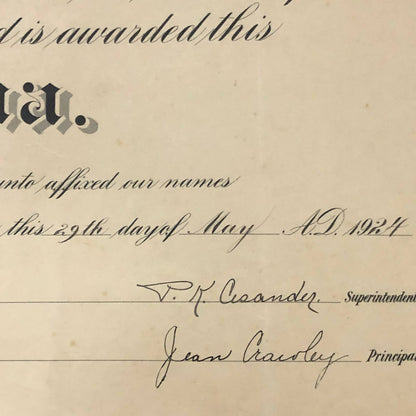 d is awarded this
a.
unto affixed our names
this 29th day of May A.D. 1924
P. K. Cesander. Superintendent
Jean Crawley Principal